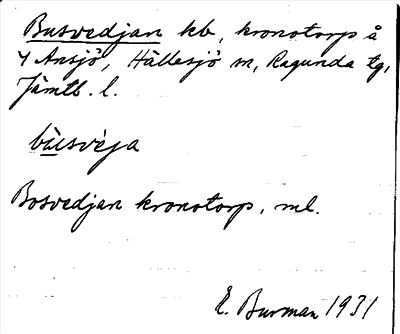 Busvedjan kb, kronotorp å
4 Ansjö, Hällesjö sn, Ragunda tg,
Jämtl. l.
bùsvèja
Bosvedjan kronotorp, ml.
E. Burman 1931